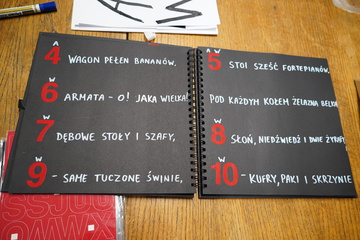 A
4 WAGON PEŁEN BANANÓW,
W
6 ARMATA - O! JAKA WIELKA!
W
7 DĘBOWE STOŁY I SZAFY,
W
9 - SAME TUCZONE ŚWINIE,
A W
5 STOI SZEŚĆ FORTEPIANÓW,
POD KAŻDYM KOŁEM ŻELAZNA BELKA
W
8 SŁOŃ, NIEDŹWIEDŹ I DWIE ŻYRAFY
W
10 - KUFRY, PAKI I SKRZYNIE